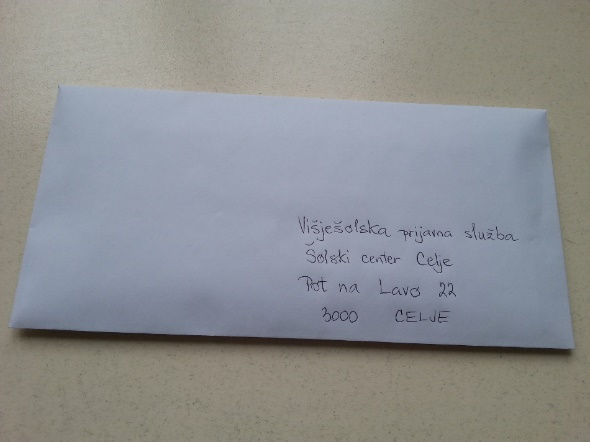 Višješolska prijavna služba
Šolski center Celje
Pot na Lavo 22
3000 CELJE